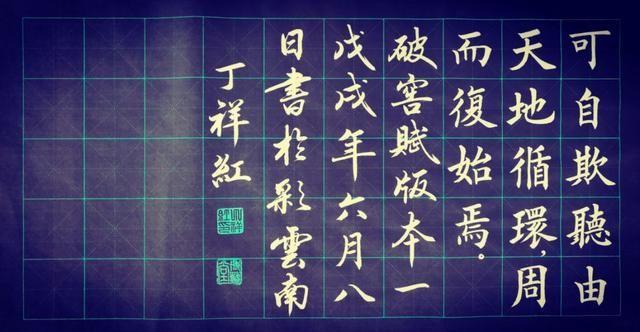 可自欺聽由
天地循環，周
而復始焉。
破窰賦版本一
戊戌年六月八
日書於彩雲南
丁祥紅